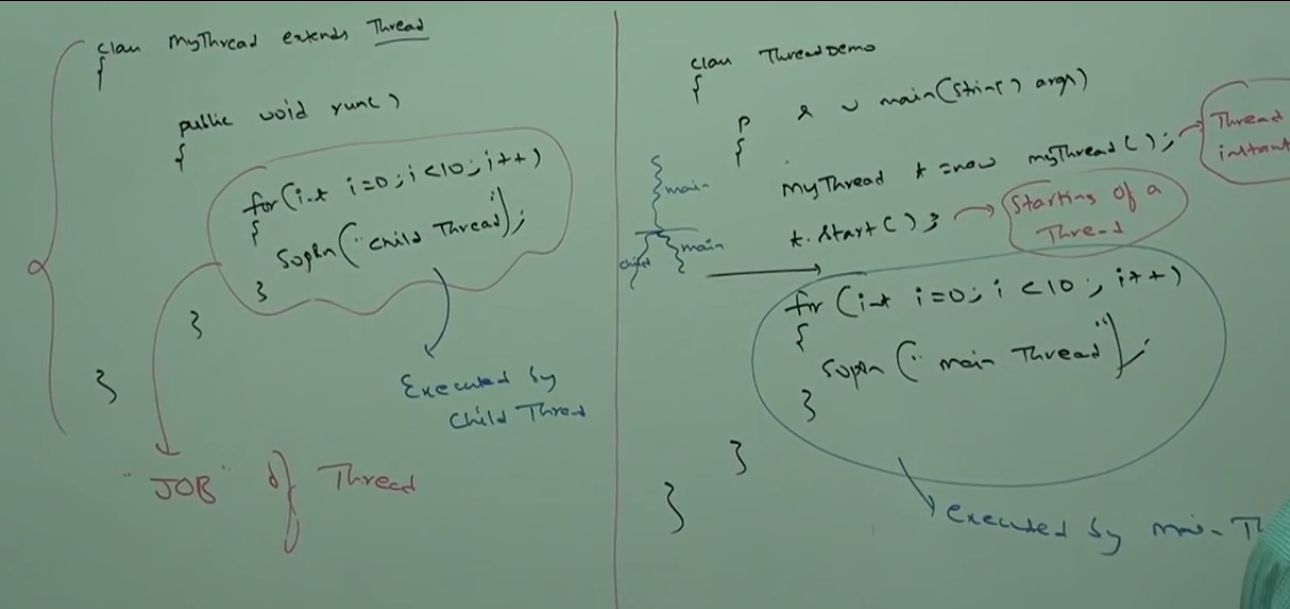 class MyThread extends Thread
{
public void run()
{
for(int i=0; i<10; i++)
{
Sopln("child Thread");
}
}
}
Executed by
child Thread
"JOB" of Thread
class ThreadDemo
{
p s v main(String[] args)
{
MyThread t = new MyThread();
Thread
t.start();
Starting of a
Thread
main
main
child
for (int i=0; i<10; i++)
{
Sopln("main Thread");
}
}
}
executed by main